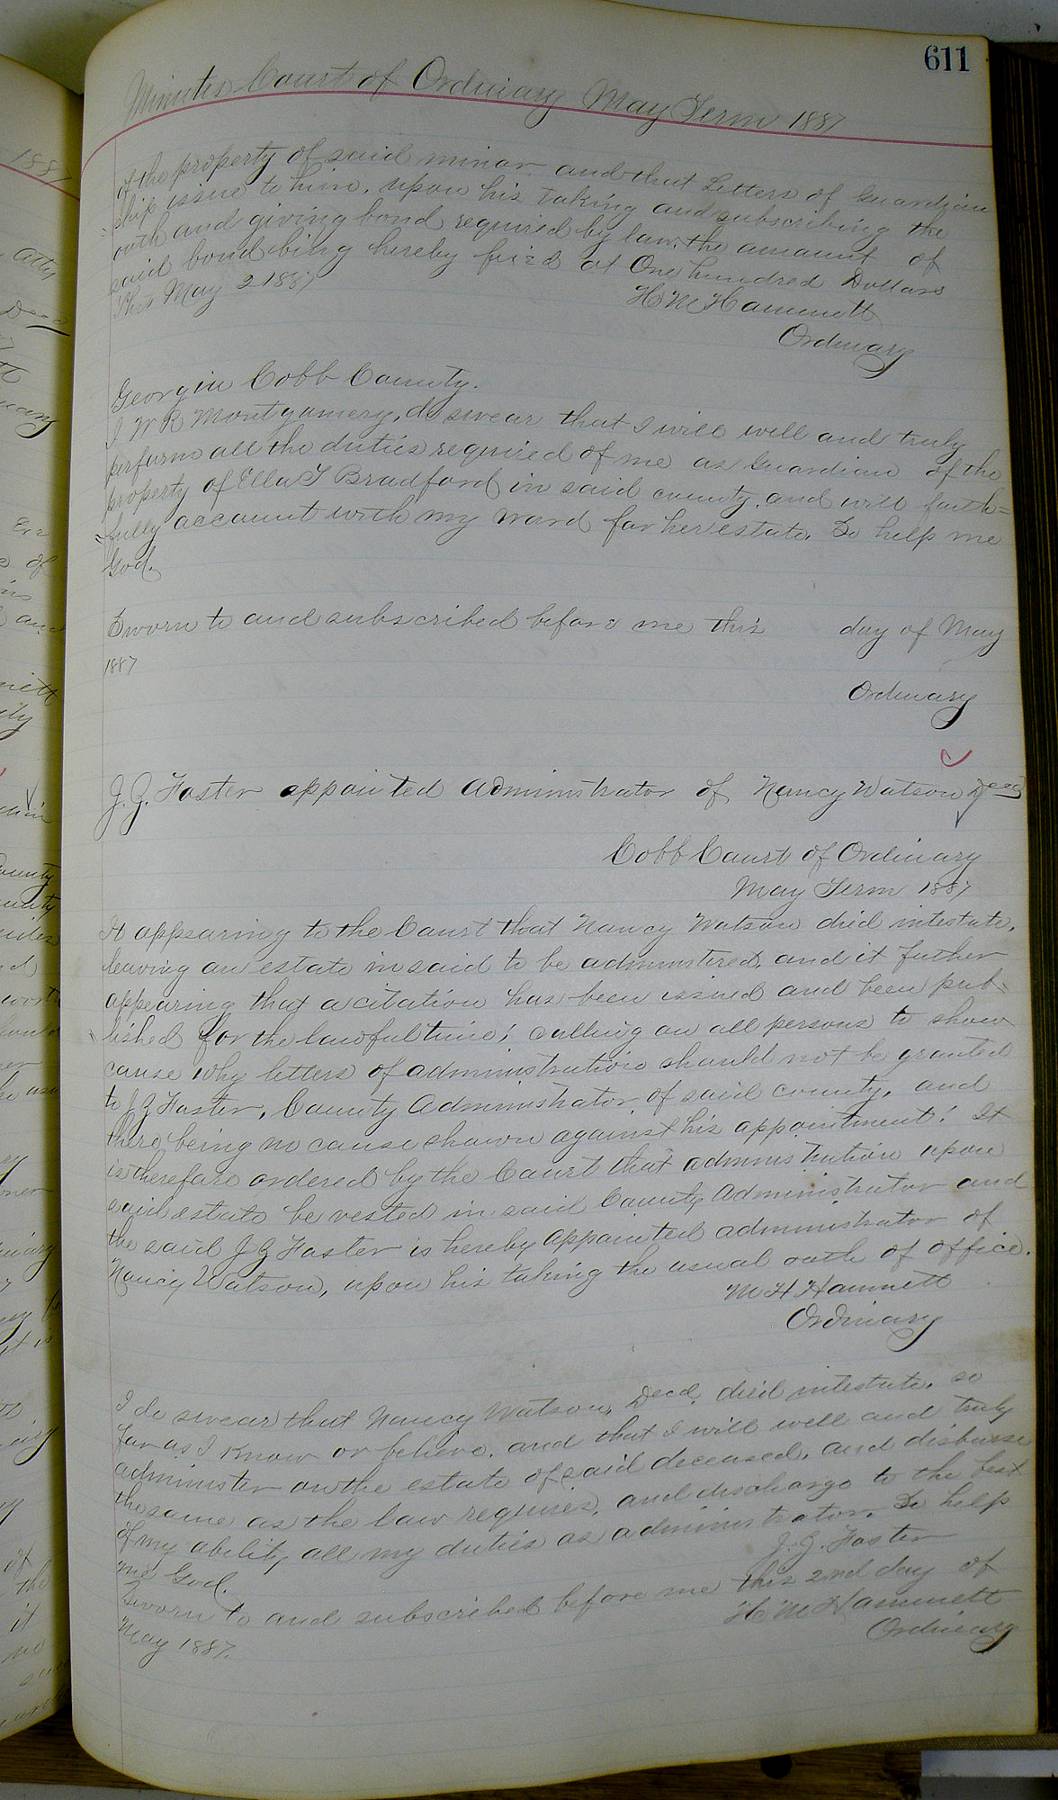 611
Minutes Court of Ordinary May Term 1887
of the property of said minor and that Letters of Guardian
=ship issue to him, upon his taking and subscribing the
oath and giving bond required by law, the amount of
said bond being hereby fixed at One hundred Dollars
This May 2 1887
H M Hammett
Ordinary
Georgia Cobb County.
I W R Montgomery, do swear that I will well and truly
perform all the duties required of me as Guardian of the
property of Ella T Bradford in said county, and will faith=
=fully account with my ward for her estate. So help me
God.
Sworn to and subscribed before me this day of May
1887
Ordinary
J. G. Foster appointed Administrator of Nancy Watson Decd
Cobb Court of Ordinary
May Term 1887
It appearing to the Court that Nancy Watson died intestate,
leaving an estate in said to be administered, and it futher
appearing that a citation has been issued and been pub=
lished for the lawful time, calling on all persons to show
cause why letters of administration should not be granted
to J G Foster, County Administrator of said county, and
there being no cause shown against his appointment. It
is therefore ordered by the Court that administration upon
said estate be vested in said County Administrator and
the said J G Foster is hereby appointed administrator of
Nancy Watson, upon his taking the usual oath of office.
M H Hammett
Ordinary
I do swear that Nancy Watson, Decd. died intestate, so
far as I know or believe, and that I will well and truly
administer on the estate of said deceased, and disburse
the same as the law requires, and discharge to the best
of my ability all my duties as administrator. So help
me God.
J. G. Foster
Sworn to and subscribed before me this 2nd day of
May 1887.
H M Hammett
Ordinary